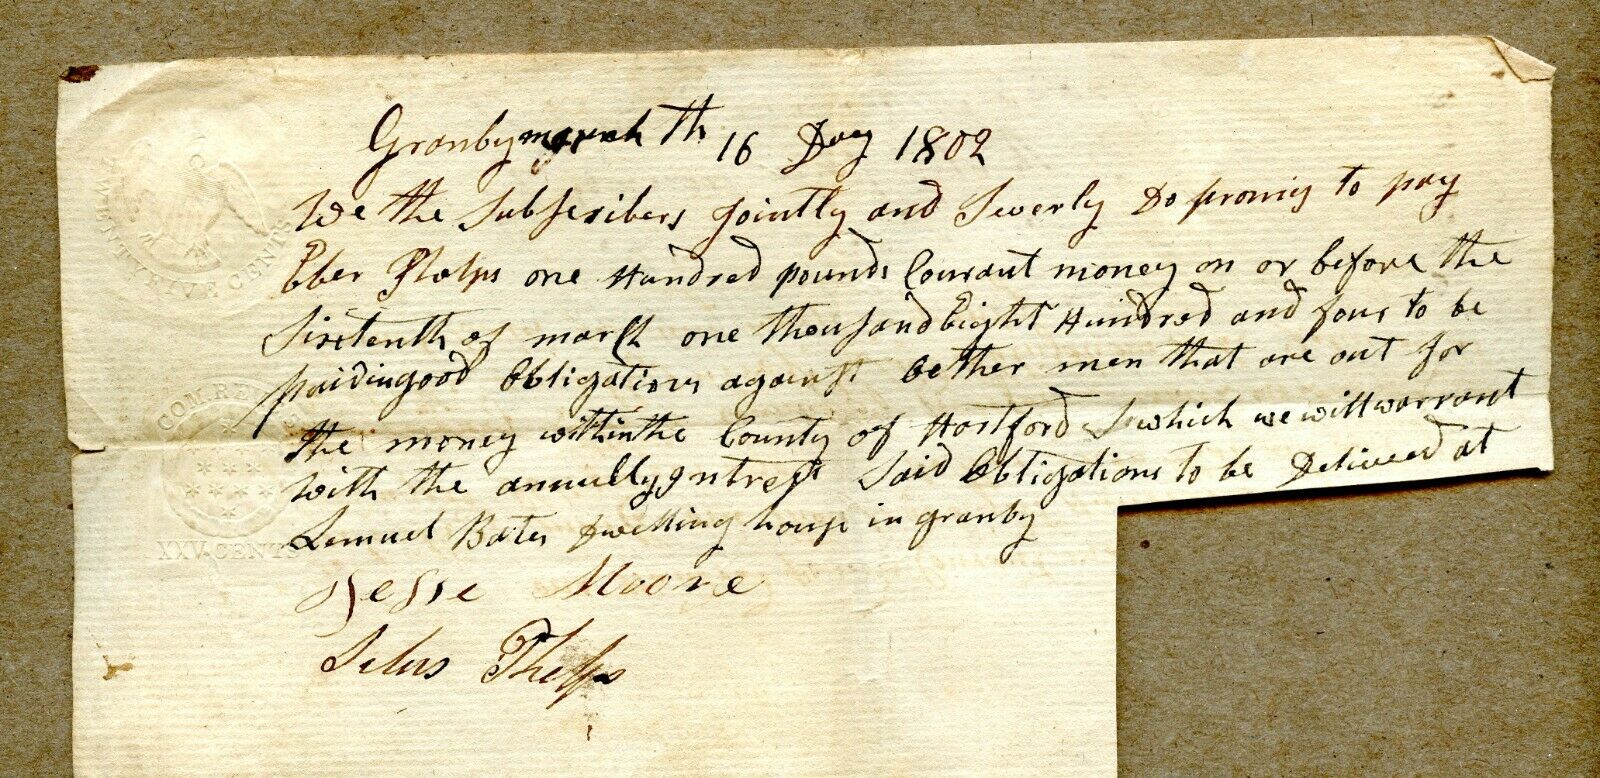 Granby march th 16 Day 1802
We the Subscribers Jointly and Severly Do promis to pay
Eber Phelps one Hundred pounds Courant money on or before the
Sixtenth of march one thousand Eight Hundred and four to be
paid in good obligations against bether men that are out for
the money within the County of Hartford which we will warrant
with the annually Intrest Said obligations to be Delivered at
Lemuel Bates Dwelling house in granby
Jesse Moore
Silus Phelps
TWENTY FIVE CENTS
COM. REV.
XXV. CENTS